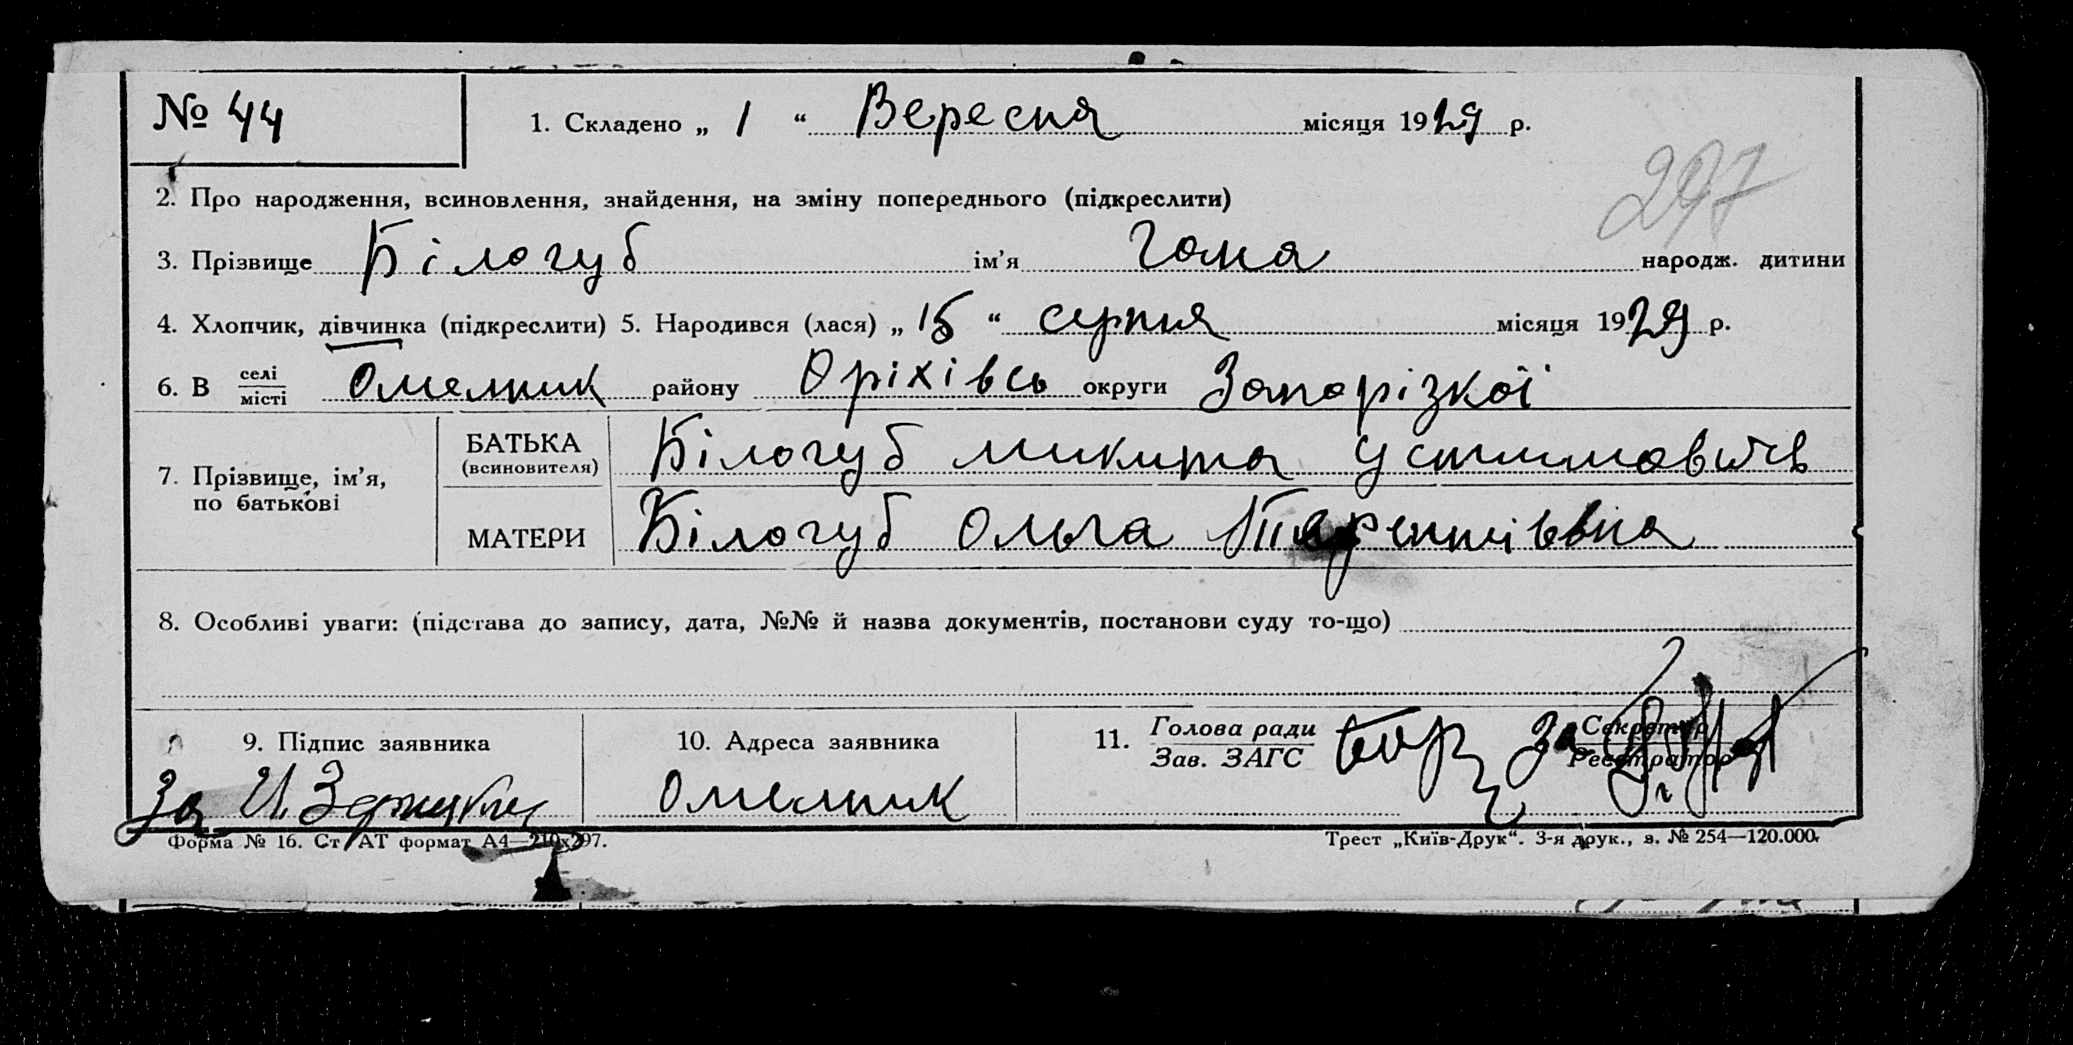 № 44
1. Складено „ 1 “ Вересня місяця 1929 р.
297
2. Про народження, всиновлення, знайдення, на зміну попереднього (підкреслити)
3. Прізвище Білогуб ім’я Гомя народж. дитини
4. Хлопчик, дівчинка (підкреслити) 5. Народився (лася) „ 15 “ серпня місяця 1929 р.
6. В селі місті Омелник району Оріхівсь округи Запорізкої
7. Прізвище, ім’я, по батькові
БАТЬКА (всиновителя) Білогуб Микита Устимович
МАТЕРИ Білогуб Ольга Терентіївна
8. Особливі уваги: (підстава до запису, дата, №№ й назва документів, постанови суду то-що)
9. Підпис заявника
За И.
10. Адреса заявника
Омелник
11. Голова ради Зав. ЗАГС За Секретар Реєстратор
Форма № 16. Ст АТ формат А4—210х297.
Трест „Київ-Друк“. 3-я друк., з. № 254—120.000.